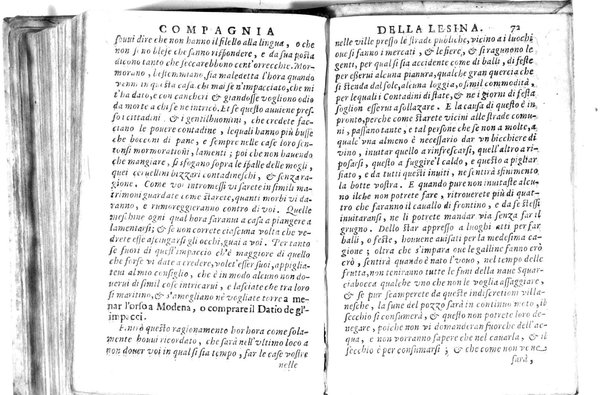 COMPAGNIA
sponi dire che non hanno il filello alla lingua, o che
non si no blese che sanno rispondere, e da sua posta
dicono tanto che seccarebbono cent'orrecchie. Mor-
morano, bestemmiano, sia maledetta l'hora quando
venni in questa casa, chi mai se n'impacciato, che mi
t'ha dato, e con cancheri & giandosse vogliono odio
da morte a chi se ne intricò. Et se questo auiene pres-
so i cittadini & i gentilhuomini, che credete facc-
ciano le pouere contadine, lequali hanno più busse
che bocconi di pane, e sempre nelle case loro sen-
tonsi romori, lamenti; poi che non hauendo
che mangiare, si sfogano sopra le spalle delle mogli,
quei ceruellini bizzari contadineschi, & senza ra-
gione. Come voi intromessi vi sarete in simili ma-
trimoni guardate come starete, quanti morbi vi da-
ranno, e rumoreggieranno contro di voi. Quelle
meschine ogni qual hora saranno a casa a piangere a
lamentarsi, & se non correte ciascuna volta che ve-
drete esse asciugarsi gli occhi, guai a voi. Per tanto
se fuori di quest'impaccio ch'è maggiore di quello
che forse vi date a credere, volet'esser fuoi, appiglia-
teui al mio consiglio, che è in modo alcuno non do-
uerui di simil cose intricarui, e lasciate che tra loro
si maritino, & s'ameglianо né vogliate torre a me-
nar l'orso a Modena, o comprare il Datio de gl'-
impacci.
Entrò questo ragionamento hor hora come sola-
mente houui ricordato, che sarà nell'vltimo loco a
non douer voi in qual si sia tempo, far le case vostre
nelle
DELLA LESINA. 72
nelle ville presso le strade publiche, vicino ai luochi
oue si fanno i mercati, & le fiere, & si ragunono le
genti, per qual si sia accidente come di balli, di feste
per esserui alcuna pianura, qualche gran quercia che
si stenda dal sole, alcuna loggia, o simil commodità,
per lequali i Contadini di state, & ne i giorni di festa
soglion essersi a sollazare. E la causa di questo è in
pronto, perche come starete vicini alle strade comu-
ni, passano tante, e tal persone che se non a molte, a
qualc'vna almeno è necessario dar vn bicchiere di
vino, inuitar quello a rinfrescarsi, quell'altro a ri-
posarsi, questo a fuggire'l caldo, e questo a pigliar
fiato, e da tutti questi inuiti, ne sentirà sfinimento
la botte vostra. E quando pure non inuitaste alcu-
no ilche non potrete fare, ritrouerete più di quat-
tro che faranno il cauallo di Frontino, e da se stessi
inuitaransi, ne li potrete mandar via senza far il
grugno. Dello star appresso a luoghi atti per far
balli, o feste, houene auisati per la medesima ca-
gione; oltra che s'impara oue le galline fanno crò
crò, sentita quando è nato l'vouo, nel tempo delle
frutta, non teniranno tutte le funi della naue Squar-
ciabocca qualche vno che non le voglia assaggiare,
& se pur scamperete da queste indiscretioni ville-
nesche, la fune del pozzo sarà in continuo moto, il
secchio si consumerà, & questo non potete loro de-
negare, poiche non vi domanderan fuorche dell'ac-
qua, e non vorranno sapere che nel cauarla, & il
secchio è per consumarsi; & che come non vene
sarà,